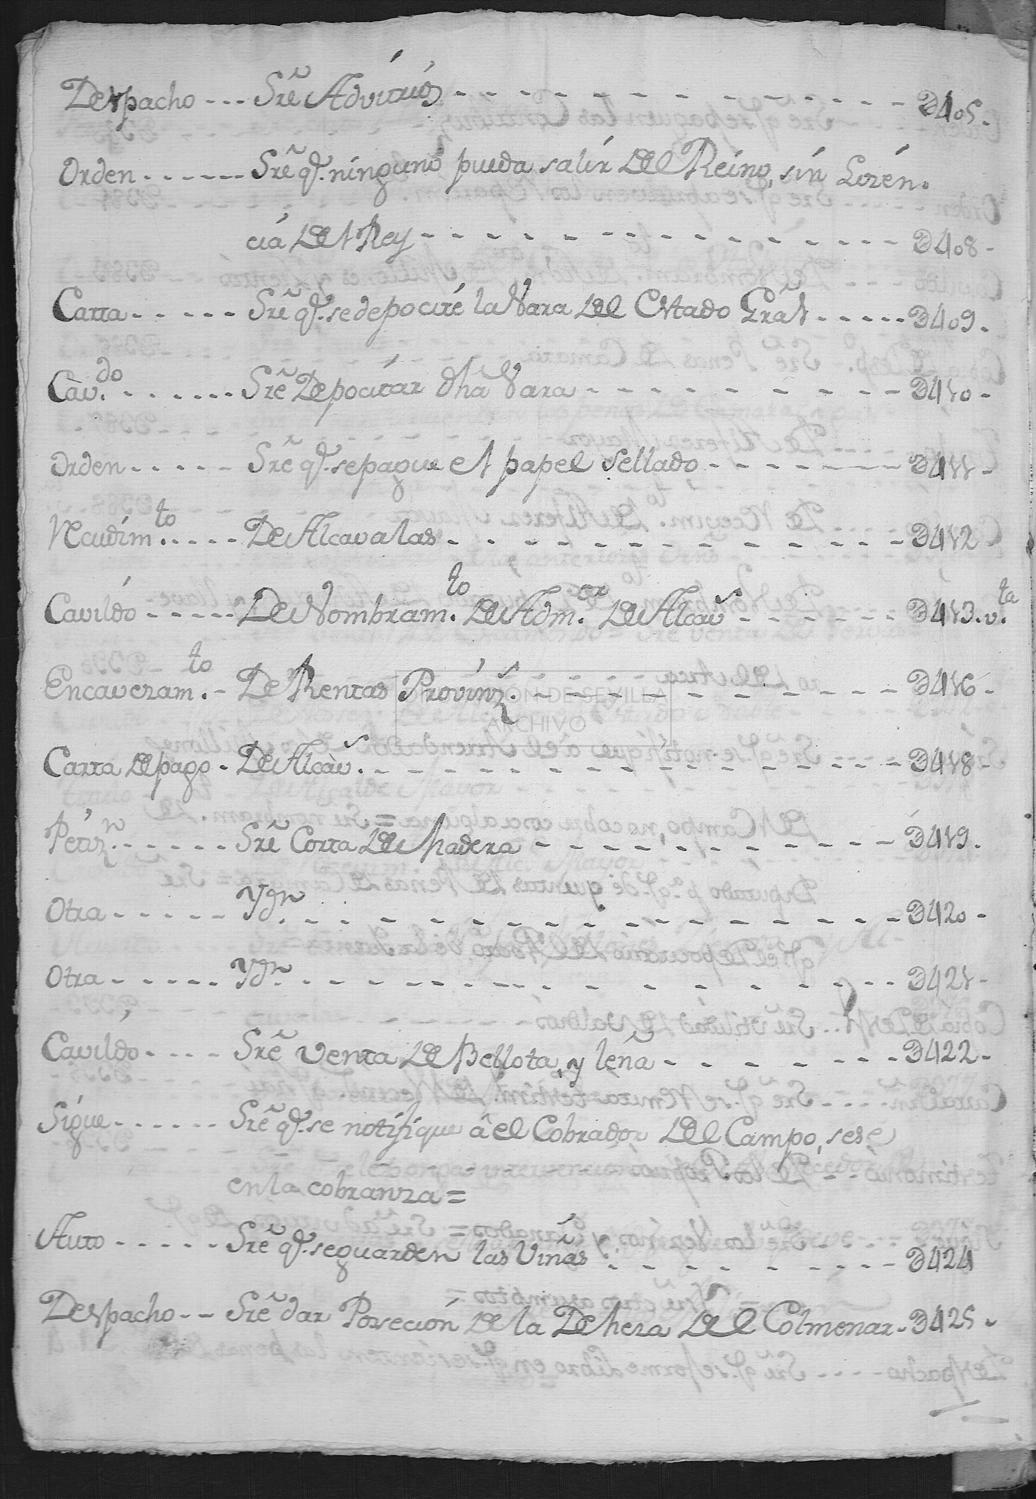 Despacho - - - Sre Advitrios - - - - - - - - - - D405.
Orden - - - - - - Sre q.e ninguno pueda salir del Reino, sin Lizen-
cia del Rey - - - - - - - - - - - - - - - D408-
Carta - - - - - - Sre q.e se depocite la Vara del Estado Gral - - - - - D409.
Cav.do - - - - - - - Sre Depocitar dha Vara - - - - - - - - - D410-
Orden - - - - - Sre q.e se pague el papel Sellado - - - - - - - D411-
Recudim.to - - - - De Alcavalas - - - - - - - - - - - - - - D412
Cavildo - - - - - De Nombram.to de Adm.or de Alcav.s - - - - - - D413.v.ta
Encavezam.to - De Rentas Provinz.s - - - - - - - - - - D416-
Carta de pago - De Alcav.s - - - - - - - - - - - - - D418-
Petiz.n - - - - - - Sre Corta de Madera - - - - - - - - - - D419.
Otra - - - - - - Ydn. - - - - - - - - - - - - - - - D420-
Otra - - - - - - Ydn. - - - - - - - - - - - - - - - D421-
Cavildo - - - - Sre Venta de Bellota, y leña - - - - - - D422-
Sigue - - - - - - Sre q.e se notifique â el Cobrador del Campo, sese
en la cobranza =
Auto - - - - - Sre q.e se guarden las Viñas - - - - - - - - D424
Despacho - - Sre dar Poseción de la Dehesa del Colmenar - D425-
DE SEVILLA
ARCHIVO